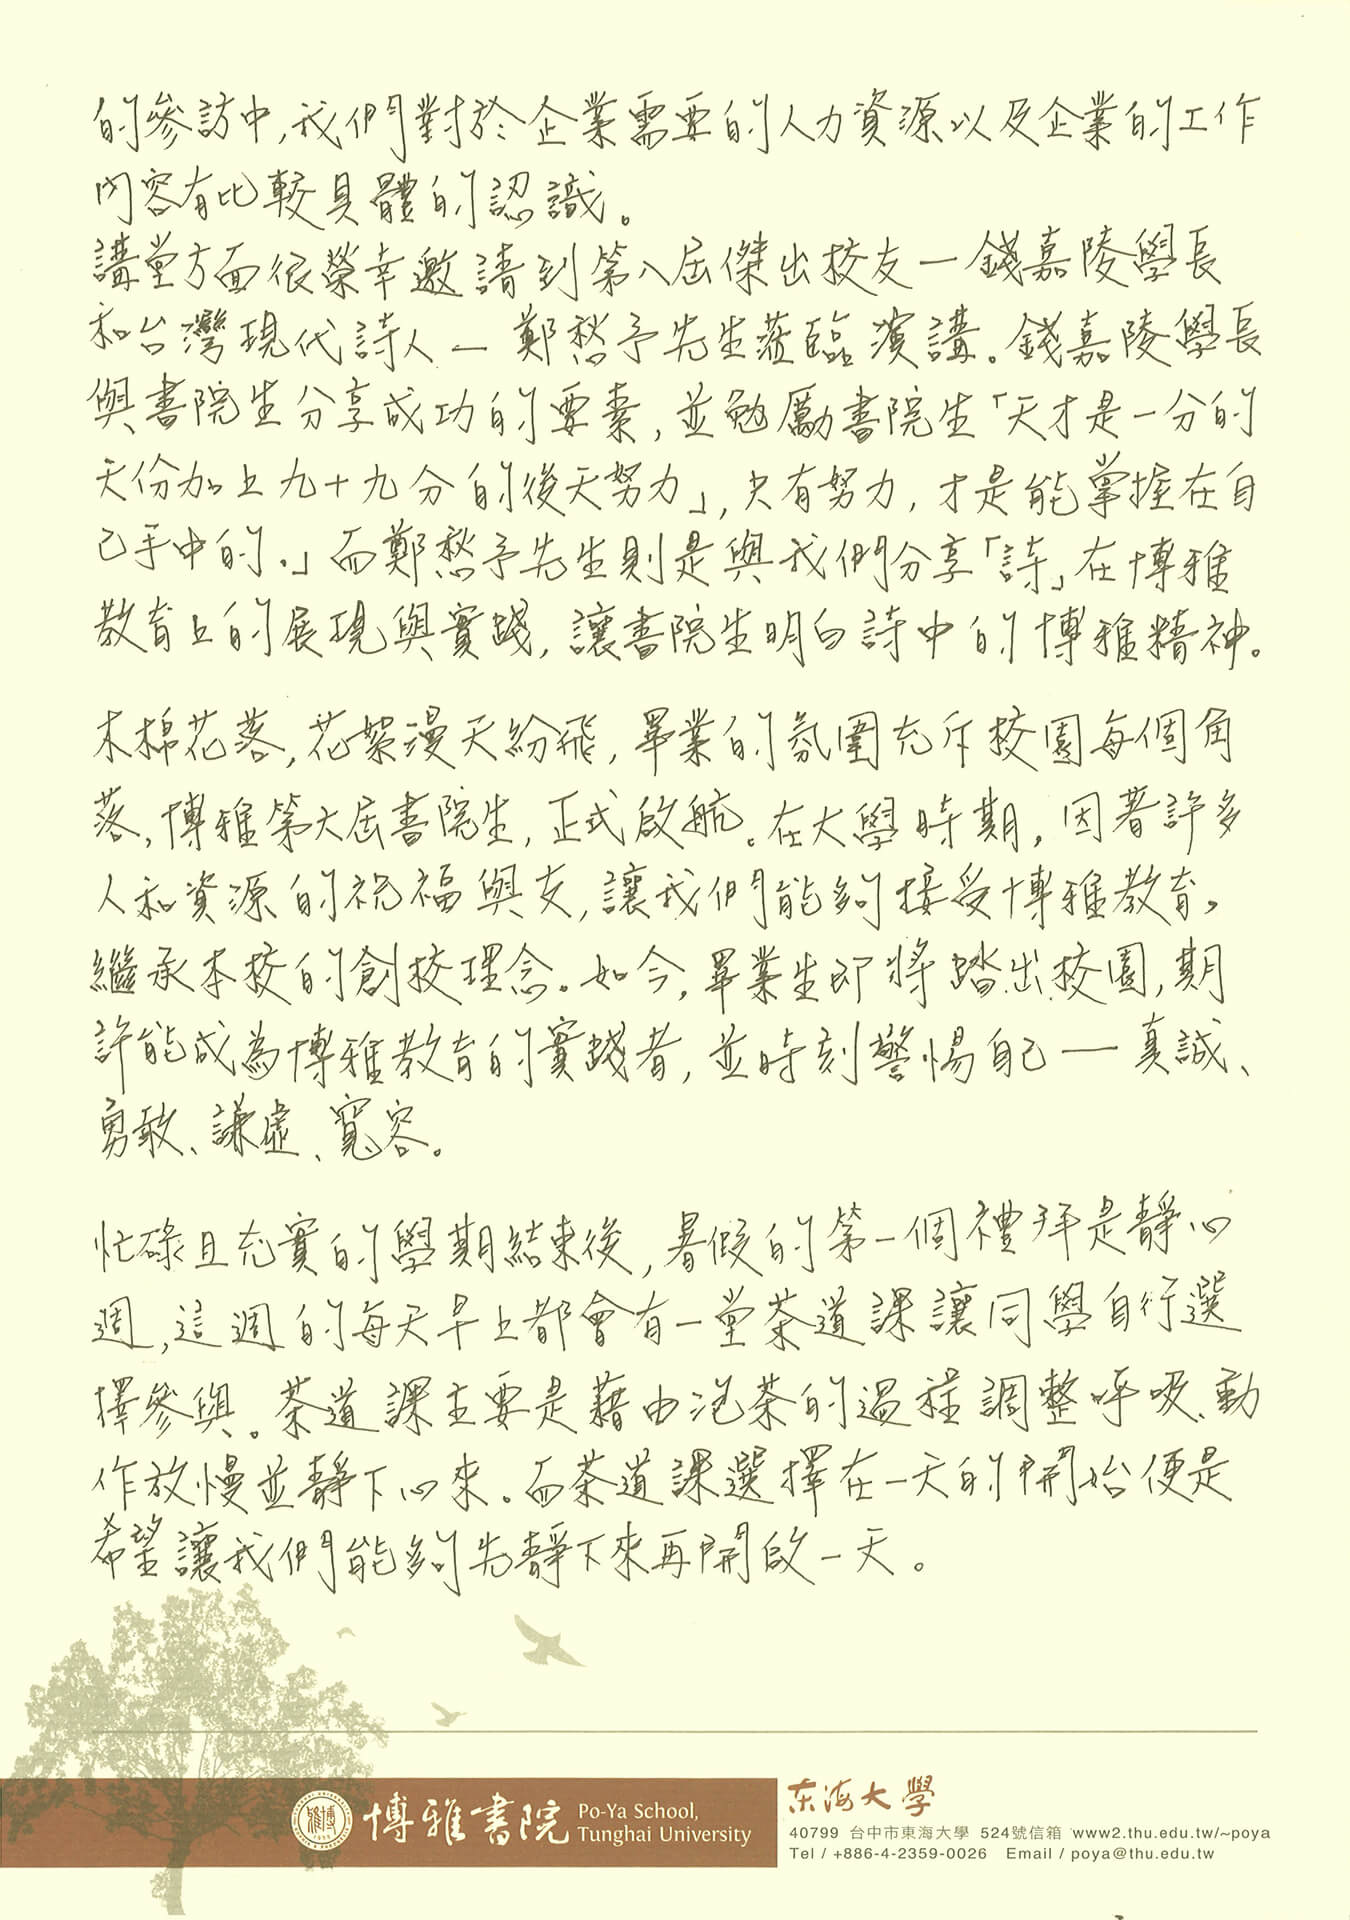 的參訪中,我們對於企業需要的人力資源以及企業的工作
內容有比較具體的認識。
講堂方面很榮幸邀請到第八屆傑出校友—錢嘉陵學長
和台灣現代詩人—鄭愁予先生蒞臨演講。錢嘉陵學長
與書院生分享成功的要素,並勉勵書院生「天才是一分的
天份加上九十九分的後天努力」,只有努力,才是能掌握在自
己手中的。」而鄭愁予先生則是與我們分享「詩」在博雅
教育上的展現與實踐,讓書院生明白詩中的博雅精神。
木棉花落,花絮漫天紛飛,畢業的氛圍充斥校園每個角
落,博雅第六屆書院生,正式啟航。在大學時期,因著許多
人和資源的祝福與支,讓我們能夠接受博雅教育,
繼承本校的創校理念。如今,畢業生即將踏出校園,期
許能成為博雅教育的實踐者,並時刻警惕自己—真誠、
勇敢、謙虛、寬容。
忙碌且充實的學期結束後,暑假的第一個禮拜是靜心
週,這週的每天早上都會有一堂茶道課讓同學自行選
擇參與。茶道課主要是藉由泡茶的過程調整呼吸、動
作放慢並靜下心來。而茶道課選擇在一天的開始便是
希望讓我們能夠先靜下來再開啟一天。
博雅 1955
博雅書院
Po-Ya School,
Tunghai University
东海大學
40799 台中市東海大學 524號信箱 www2.thu.edu.tw/~poya
Tel / +886-4-2359-0026 Email / poya@thu.edu.tw